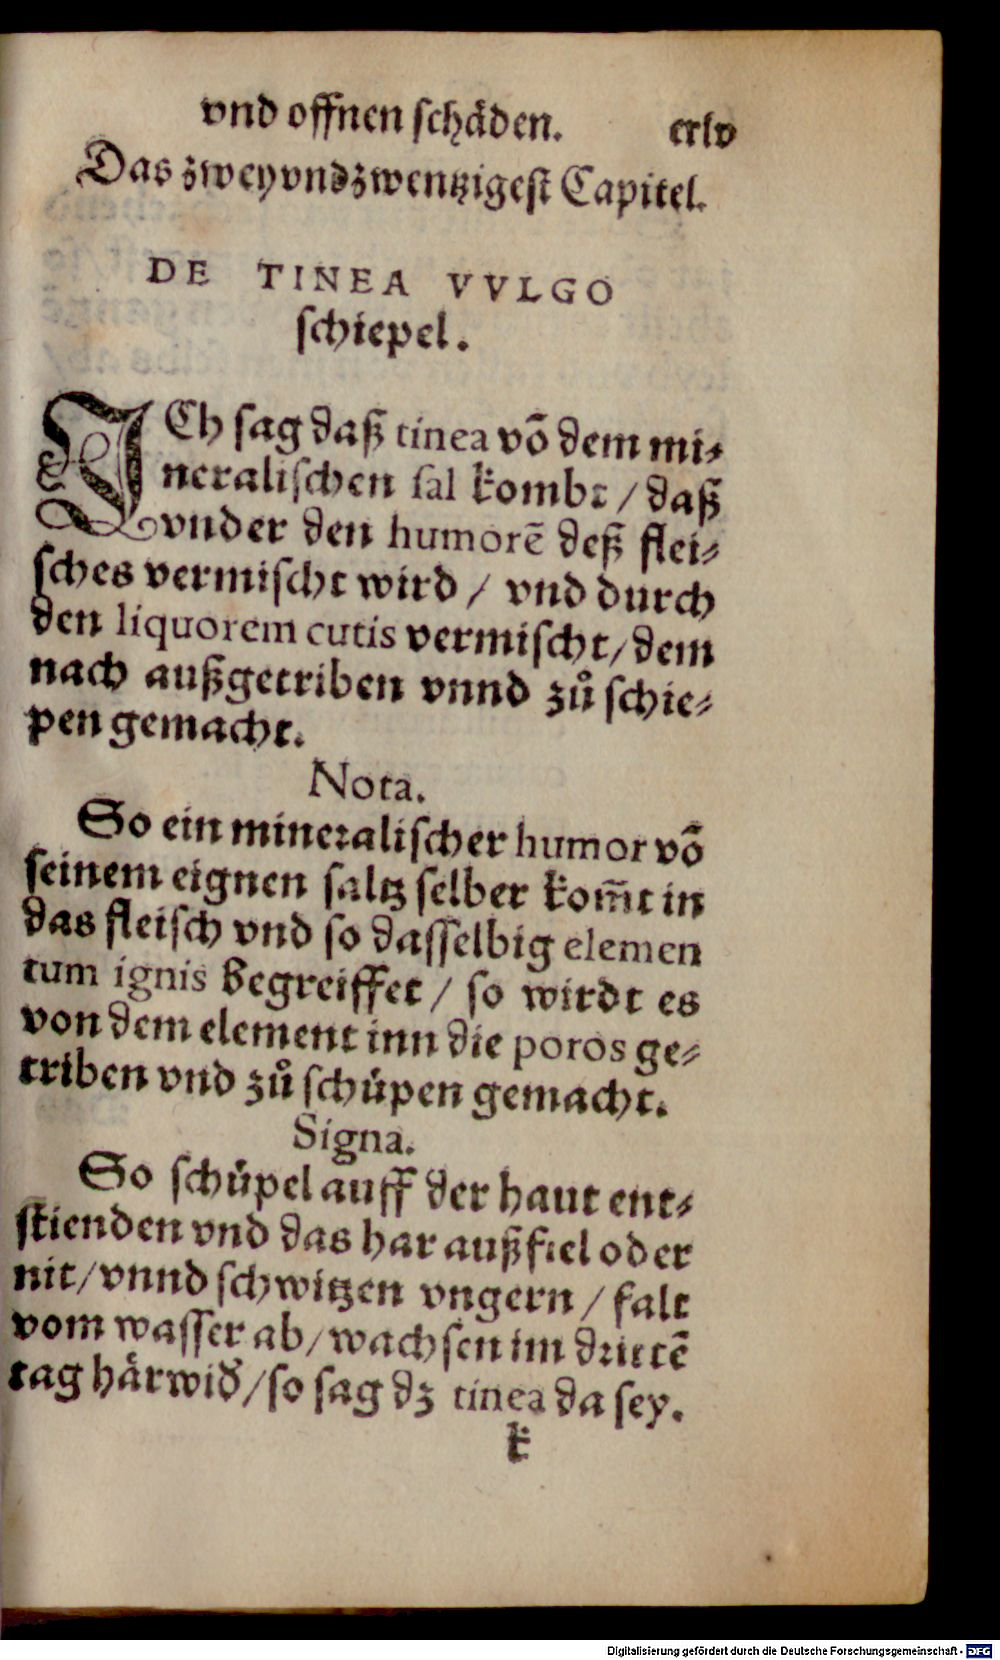 vnd offnen schäden. cxlv
Das zweyvndzwentzigest Capitel.
DE TINEA VVLGO
schiepel.
ICh sag daß tinea võ dem mi⸗
neralischen sal kombt / daß
vnder den humorẽ deß flei⸗
sches vermischt wird / vnd durch
den liquorem cutis vermischt/dem
nach außgetriben vnnd zů schie⸗
pen gemacht.
Nota.
So ein mineralischer humor võ
seinem eignen saltz selber kom̃t in
das fleisch vnd so dasselbig elemen
tum ignis begreiffet / so wirdt es
von dem element inn die poros ge⸗
triben vnd zů schüpen gemacht.
Signa.
So schüpel auff der haut ent⸗
stienden vnd das har außfiel oder
nit/vnnd schwitzen vngern / falt
vom wasser ab/wachsen im drittẽ
tag härwid̃/so sag dz tinea da sey.
k
Digitalisierung gefördert durch die Deutsche Forschungsgemeinschaft - DFG